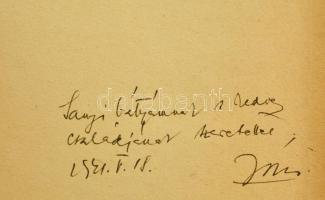 Sanyi bátyámnak s kedves
családjának szeretettel
1941. V. 18.